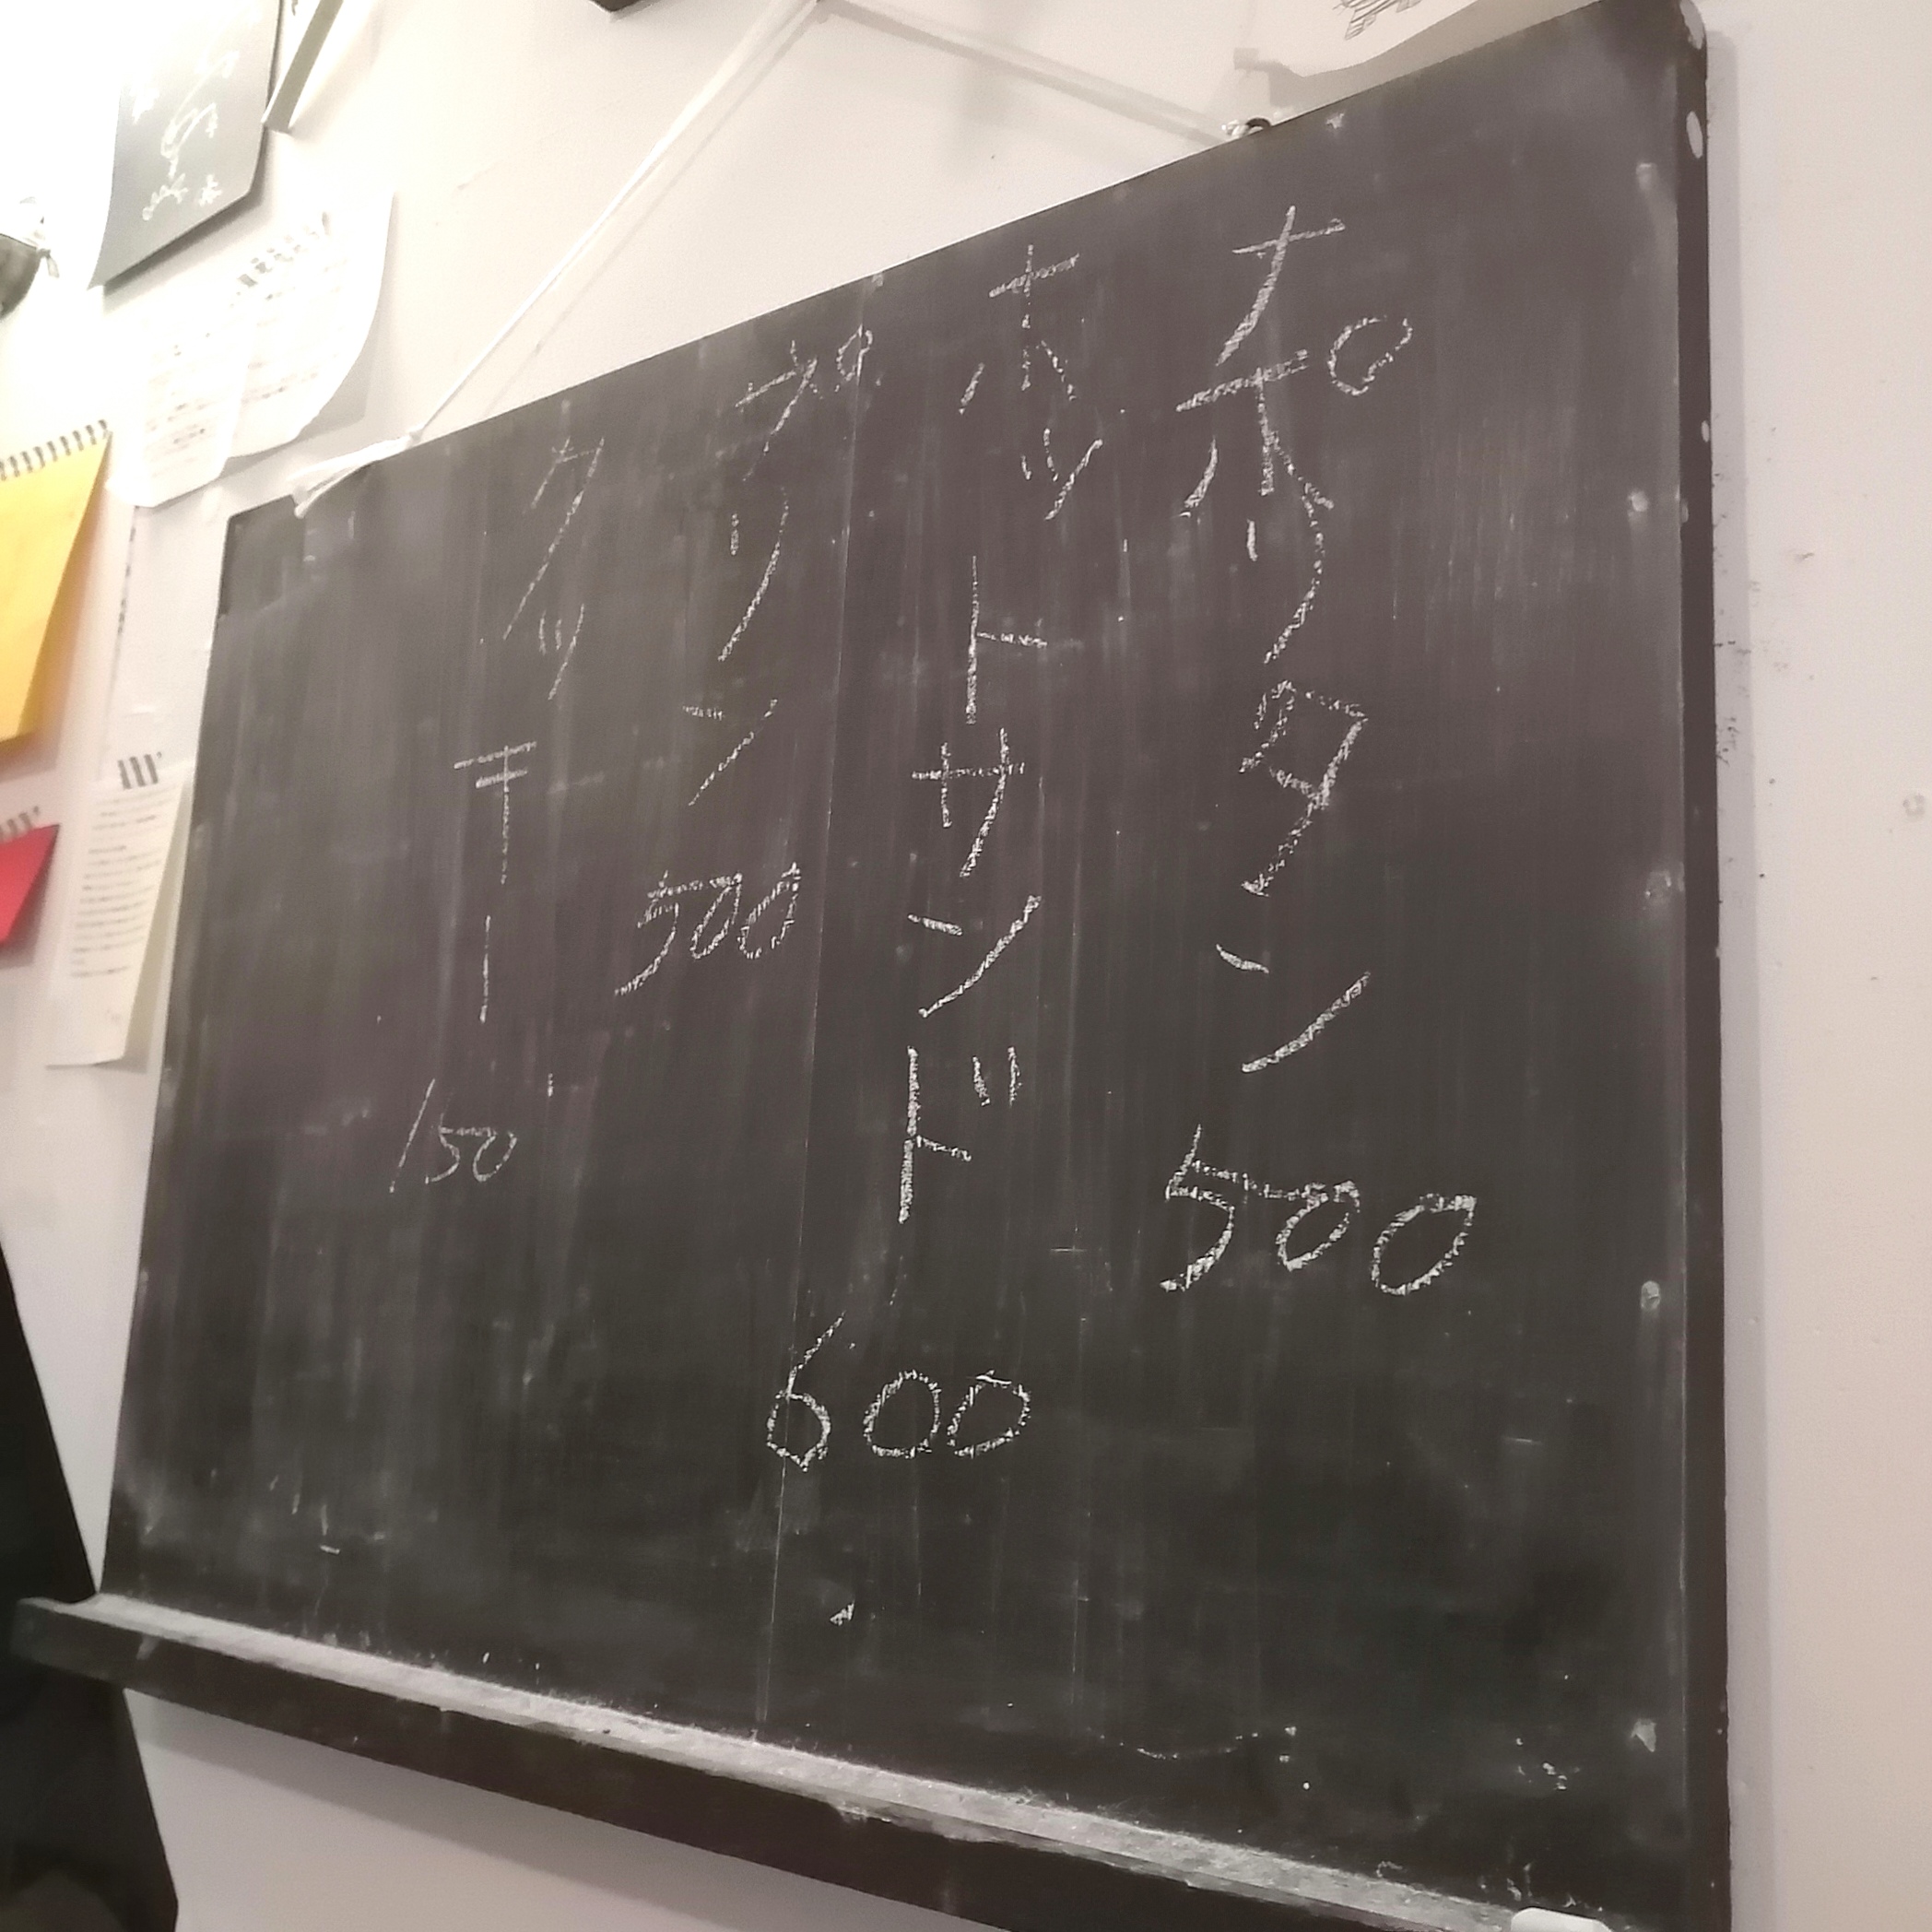 ナポリタン 500
ホットサンド 600
プリン 500
クッキー 150